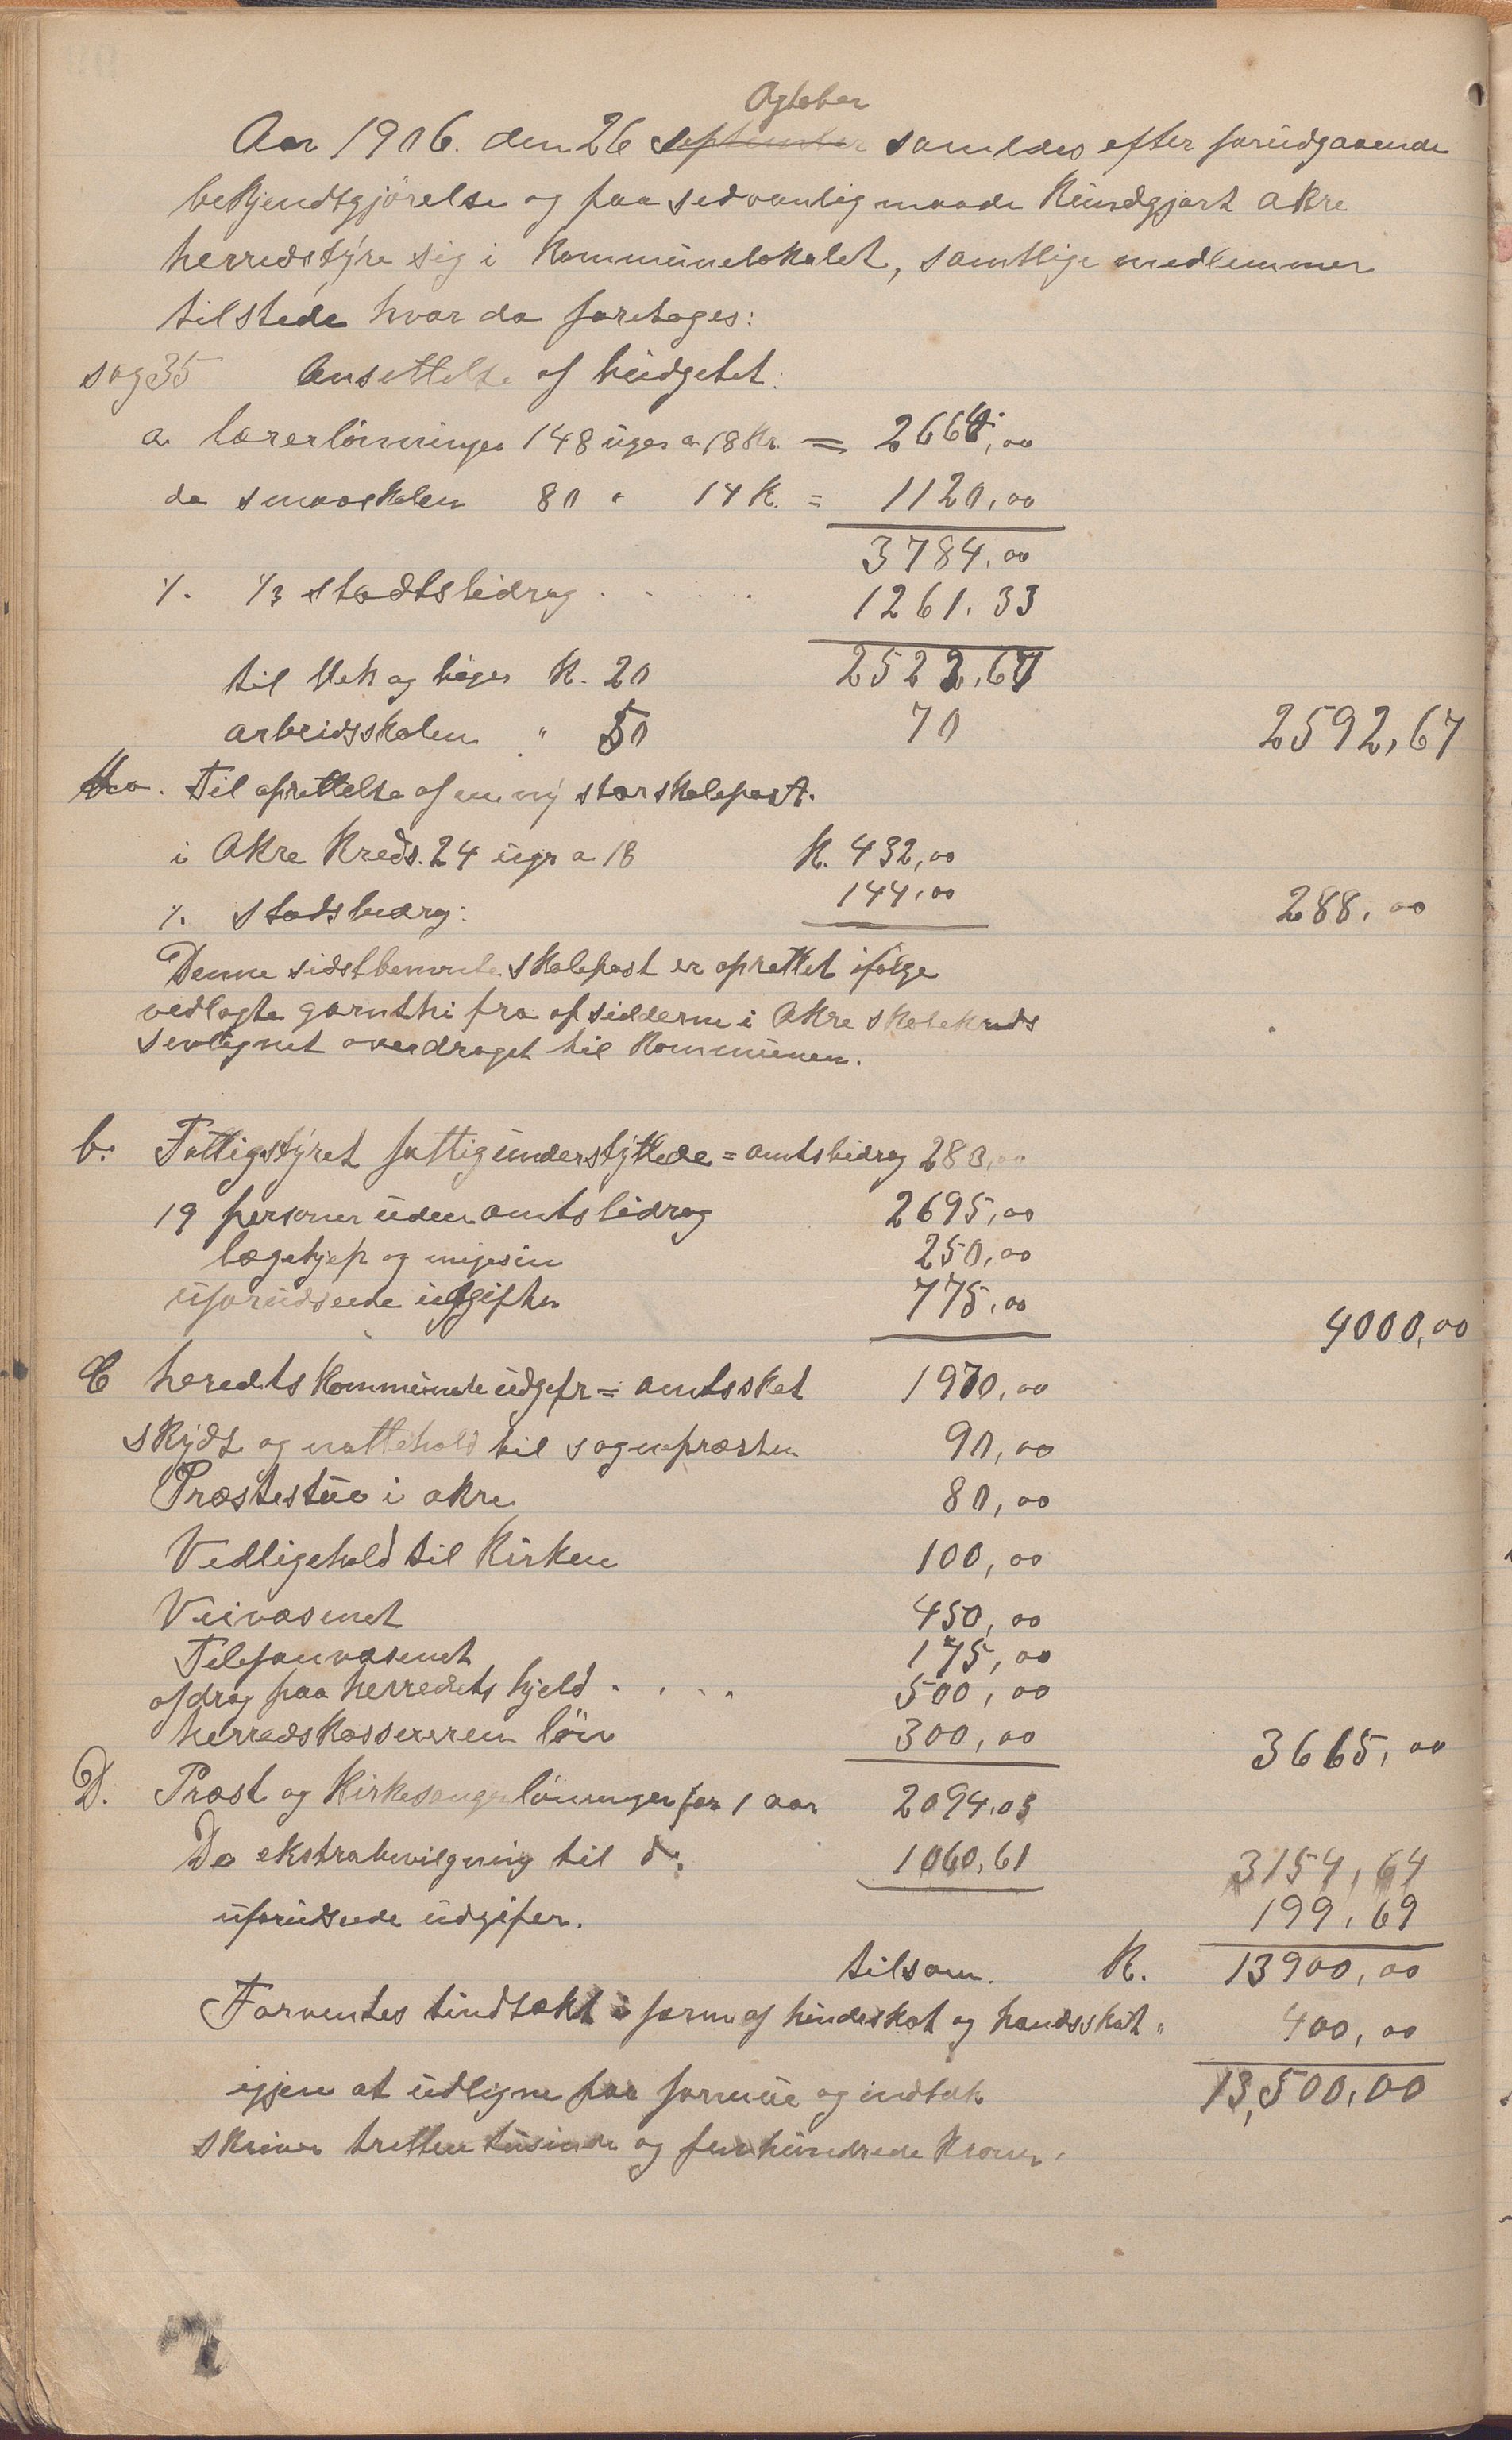 Agtober
Aar 1906. den 26 september samledes efter forudgaaende
bekjendtgjørelse og paa sedvanlig maade kundgjort Åkre
herredstyre sig i kommunelokalet, samtlige medlemmer
tilstede hvor da foretoges:
sag 35 Ansettelse af budgetet:
a lærerlønninger 148 uger a 18 Kr. = 2664,00
do smaaskolen 80 " 14 K. = 1120,00
3784,00
٪. 1/3 stadtsbidrag . . . . . 1261.33
2522,67
til blek og bøger K. 20
arbeidsskolen " 50 70 2592,67
Til oprettelse af en ny storskolepost.
i Åkre Kreds. 24 uger a 18 K. 432,00
٪. stadsbidrag: 144,00 288,00
Denne sidstbenevnte skolepost er oprettet ifølge
vedlagte garnthi fra opsidderne i Åkre skolekreds
overdraget til kommunen.
b. Fattigstyret fattigunderstyttede = amtsbidrag 280,00
19 personer uden amtsbidrag 2695,00
lægehjep og mijesin 250,00
uforudseede udgifter 775,00 4000,00
C heredts kommunale udgifr = amtsskat 1970,00
skyds og nattehold til sognepræsten 90,00
Præstestue i åkre 80,00
Vedligehold til Kirken 100,00
Veivæsenet 450,00
Telefonvæsenet 175,00
afdrag paa herredets gjeld . . . . 500,00
herredskassereren løn 300,00 3665,00
D. Præst og Kirkesanger lønninger for 1 aar 2094,03
Do ekstrabevilgning til do. 1060,61 3154,64
uforudseede udgifer. 199,69
tilsam. K. 13900,00
Forventes tindtækt i form af hundeskat og handsskat " 400,00
igjen at udligne paa formue og indtæk 13,500,00
skriver tretten tusinde og femhundrede kroner.